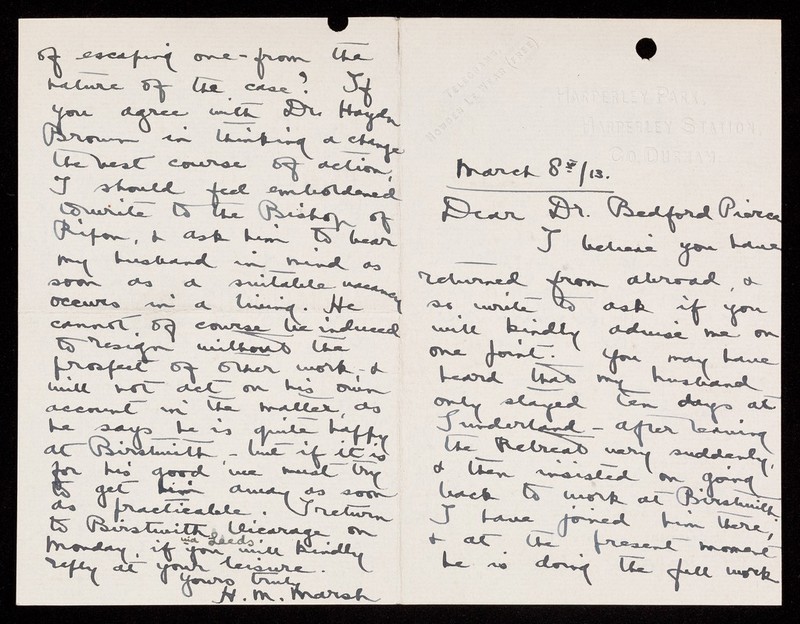 HARPERLEY PARK,
HARPERLEY STATION,
CO. DURHAM.
March 8th/13.
Dear Dr. Bedford Pierce
I believe you have
returned from abroad, &
so write to ask if you
will kindly advise me on
one point. You may have
heard that my husband
only stayed ten days at
Sunderland - after leaving
the Retreat very suddenly,
& then insisted on going
back to work at Birstwith
I have joined him there,
& at the present moment
he is doing the full work
of escaping one - from the
nature of the case? If
you agree with Dr. Haydn
Brown in thinking a change
the best course of action,
I should feel emboldened
to write to the Bishop of
Ripon, & ask him to bear
my husband in mind as
soon as a suitable vacancy
occurs in a living. He
cannot of course be induced
to resign without the
prospect of other work - &
will not act on his own
account in the matter, as
he says he is quite happy
at Birstwith - but if it is
for his good we must try
to get him away as soon
as practicable. I return
to Birstwith Vicarage on
Monday, via Leeds if you will kindly
reply at your leisure.
Yours truly
H. M. Marsh